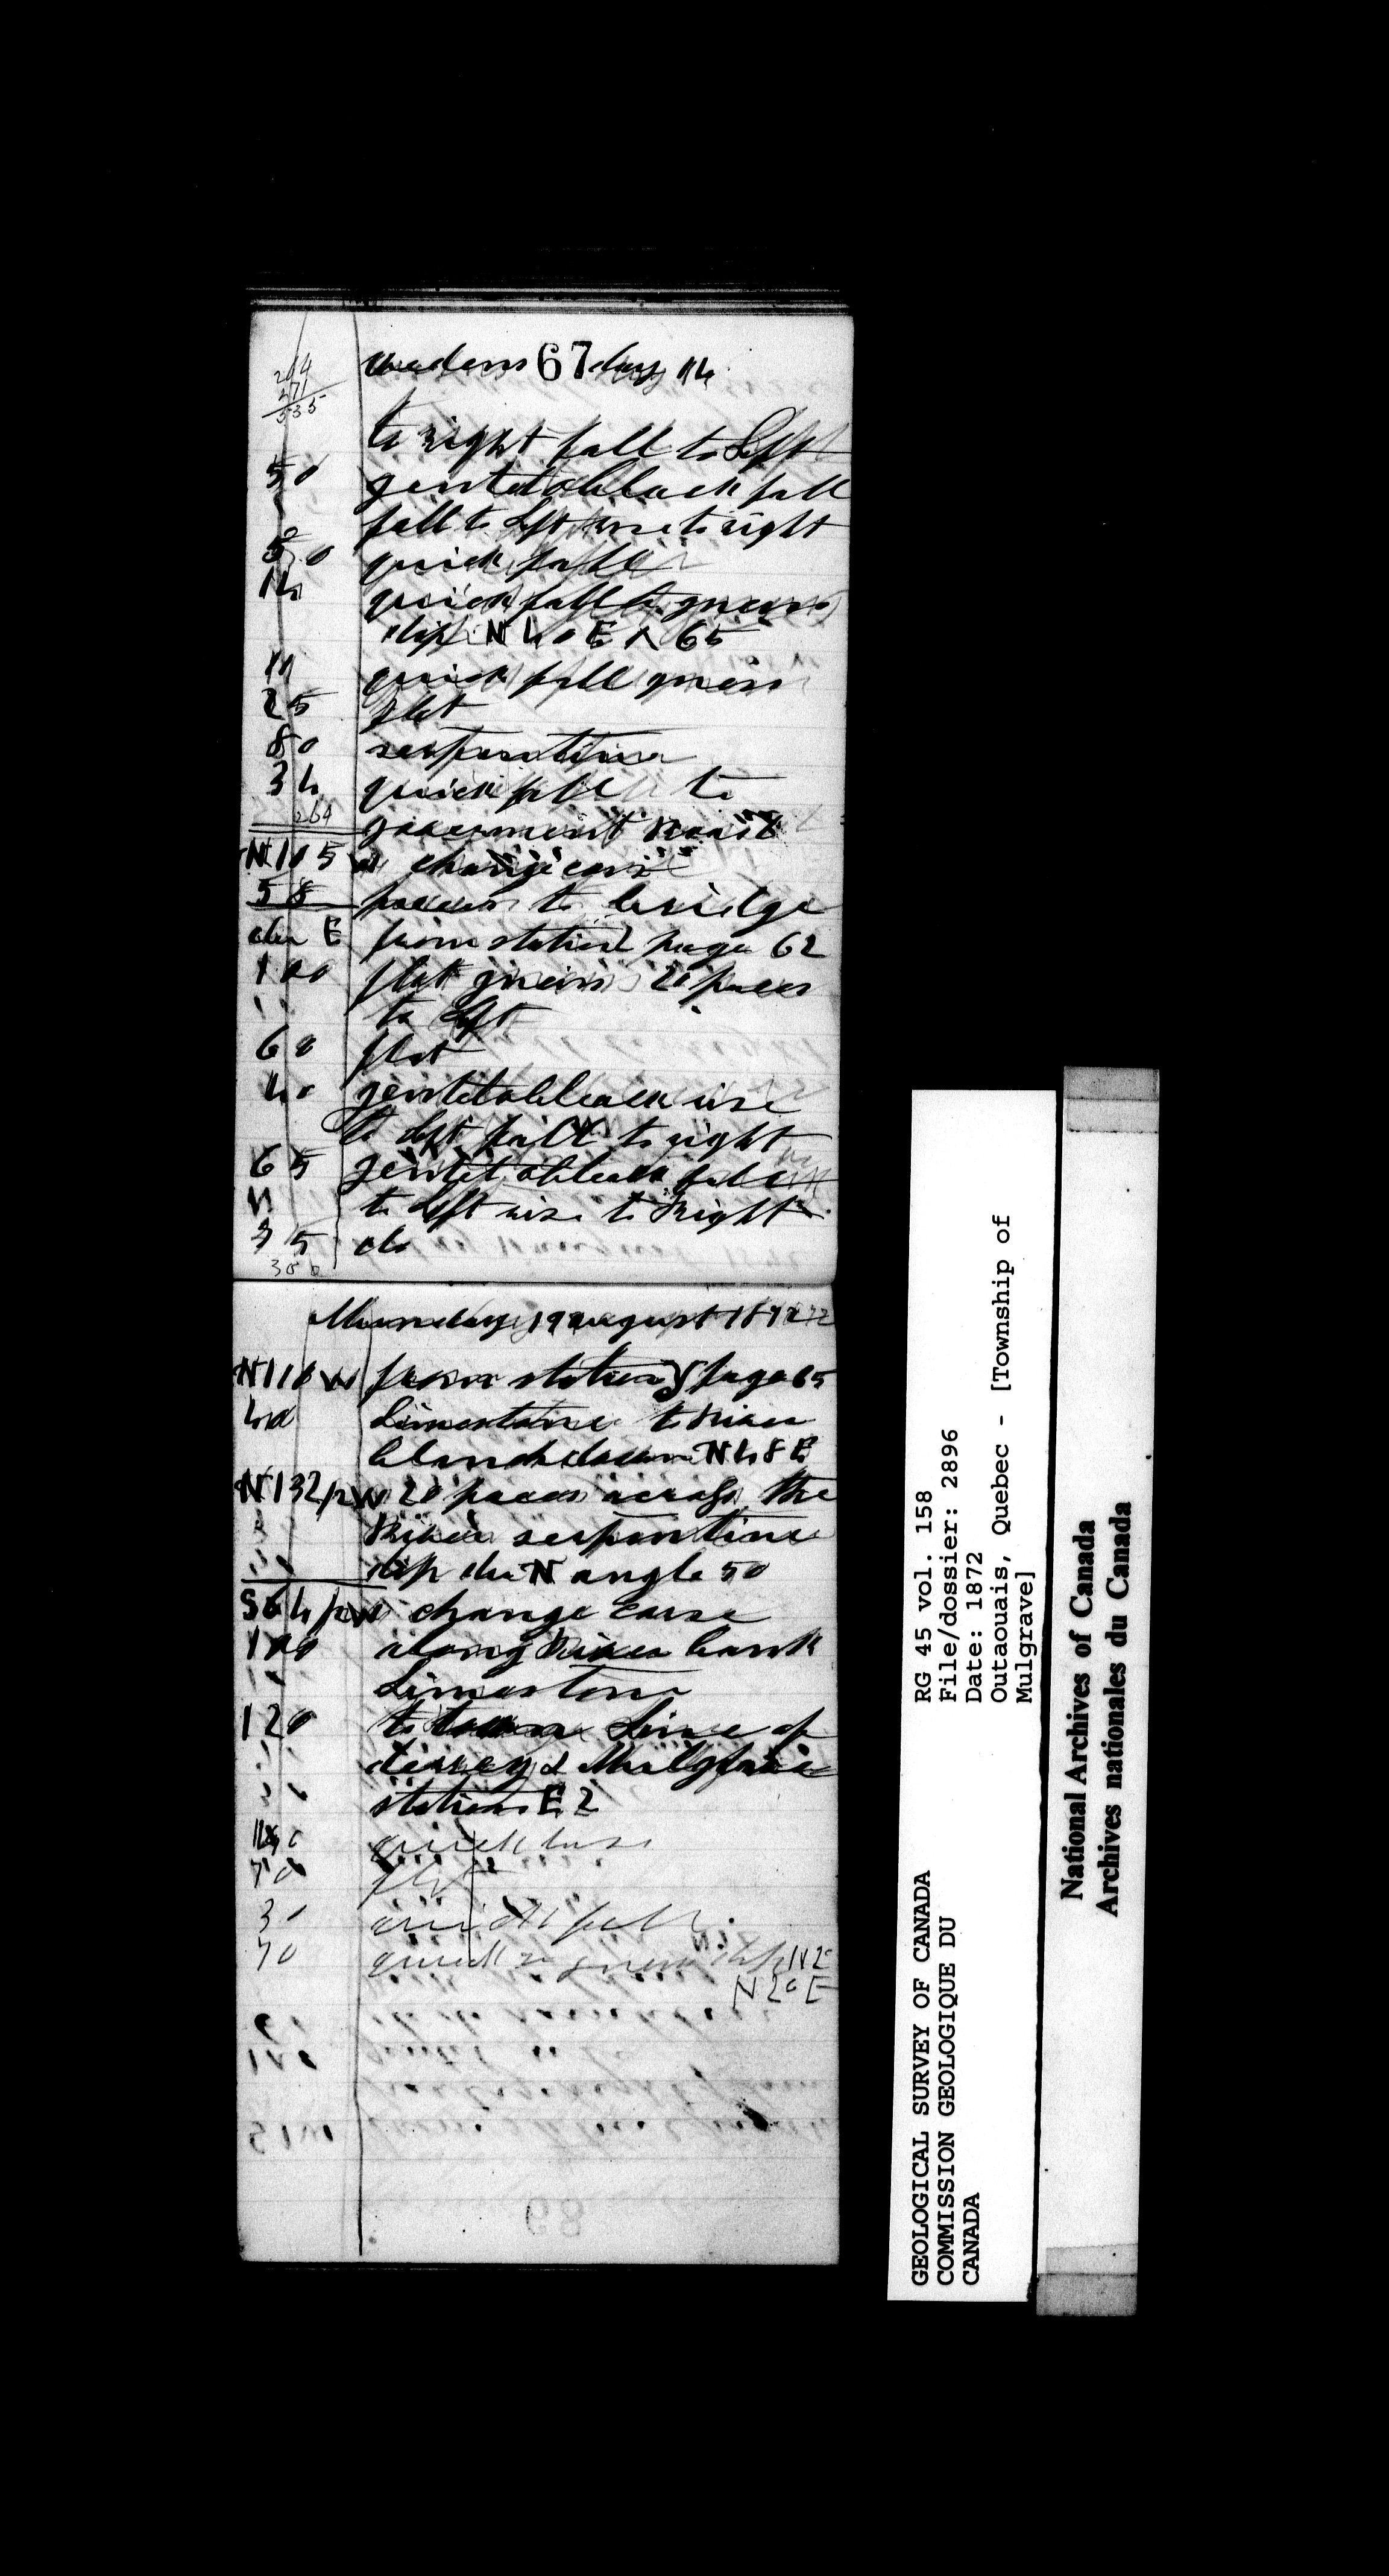 264
271
535
wedens 67 day 14
to right fall to Left
50 gentetableack fall
fall to Left rise to right
50 quick fall
14 quick fall to gneiss
dip N 40 E < 65
11 quick fall gneiss
25 flat
80 serpentine
34 quick fall to
264
government Road
N105 W change corse
58 paces to bridge
due E from station page 62
100 flat gneiss 20 paces
to Left
60 flat
40 gentetableack rise
to Left fall to right
65 gentetableack fall
to Left rise to Right
35 do
300
Munday 19 august 1872
N110 W from station page 65
40 Limestone to River
Blanch down N 48 E
N132/2 W 20 paces across the
River serpentine
dip due N angle 50
S64/2 W change corse
100 along River bank
Limestone
120 to town Line of
derrey & Mulgrave
station E 2
quick
70 flat
30 quick fall
70 quick gneiss dip N2
N 20 E
GEOLOGICAL SURVEY OF CANADA
COMMISSION GEOLOGIQUE DU
CANADA
RG 45 vol. 158
File/dossier: 2896
Date: 1872
Outaouais, Quebec - [Township of
Mulgrave]
National Archives of Canada
Archives nationales du Canada